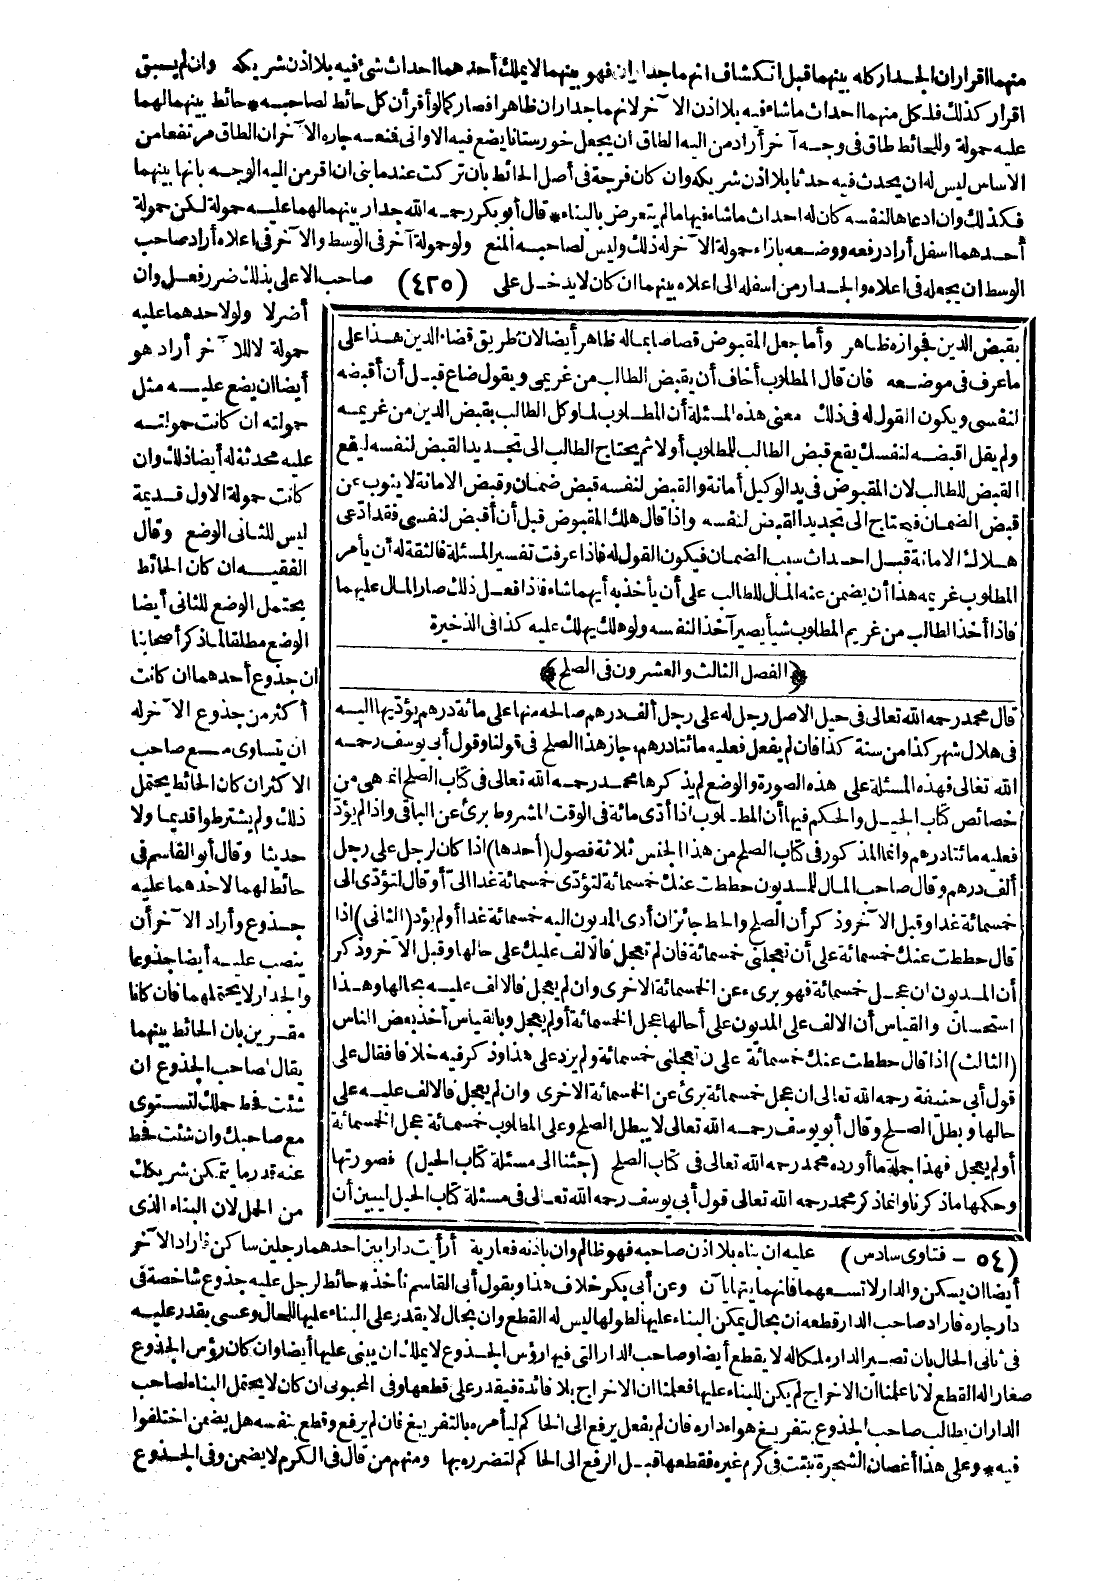 منهما اقراران الجدار كله بينهما قبل انكشاف انهما جداران فهو بينهما لا يملك أحدهما احداث شئ فيه بلا اذن شريكه وان لم يسبق
اقرار كذلك فلكل منهما احداث ما شاء فيه بلا اذن الآخر لانهما جداران ظاهرا فصار كما لو أقر أن كل حائط لصاحبه * حائط بينهما لهما
عليه حمولة وللحائط طاق فى وجه آخر أراد من اليه الطاق ان يجعل خورستانا يضع فيه الاوانى فمنعه جاره الآخر ان الطاق مرتفعا من
الاساس ليس له ان يحدث فيه حدثا بلا اذن شريكه وان كان فرجة فى أصل الحائط بان تركت عندما بنى ان اقر من اليه الوجه بانها بينهما
فكذلك وان ادعاها لنفسه كان له احداث ما شاء فيها ما لم يتعرض بالبناء * قال أبو بكر رحمه الله جدار بينهما لهما عليه حمولة لكن حمولة
أحدهما اسفل أراد رفعه ووضعه بازاء حمولة الآخر له ذلك وليس لصاحبه المنع ولو حمولة آخر فى الوسط والآخر فى اعلاه أراد صاحب
الوسط ان يجعله فى اعلاه والجدار من اسفله الى اعلاه بينهما ان كان لا يدخل على (٤٢٥) صاحب الاعلى بذلك ضرر فعل وان
أضر لا ولو لاحدهما عليه
حمولة لا للآخر أراد هو
أيضا ان يضع عليه مثل
حمولته ان كانت حمولته
عليه محدثة له أيضا ذلك وان
كانت حمولة الاول قديمة
ليس للثانى الوضع وقال
الفقيه ان كان الحائط
يحتمل الوضع للثانى أيضا
الوضع مطلقا لما ذكر أصحابنا
ان جذوع أحدهما ان كانت
أكثر من جذوع الآخر له
ان يتساوى مع صاحب
الاكثر ان كان الحائط يحتمل
ذلك ولم يشترطوا قديما ولا
حديثا وقال أبو القاسم فى
حائط لهما لاحدهما عليه
جذوع وأراد الآخر أن
ينصب عليه أيضا جذوعا
والجدار لا يحتملهما فان كانا
مقرين بان الحائط بينهما
يقال لصاحب الجذوع ان
شئت فحط حملك لتستوى
مع صاحبك وان شئت فحط
عنه قدر ما يتمكن شريكك
من الحمل لان البناء الذى
بقبض الدين فجوازه ظاهر وأما جعل المقبوض قصاصا بماله ظاهر أيضا لان طريق قضاء الدين هذا على
ما عرف فى موضعه فان قال المطلوب أخاف أن يقبض الطالب من غريمى ويقول ضاع قبل أن أقبضه
لنفسى ويكون القول له فى ذلك معنى هذه المسئلة أن المطلوب لما وكل الطالب بقبض الدين من غريمه
ولم يقل اقبضه لنفسك يقع قبض الطالب للمطلوب أولا ثم يحتاج الطالب الى تجديد القبض لنفسه ليقع
القبض للطالب لان المقبوض فى يد الوكيل أمانة والقبض لنفسه قبض ضمان وقبض الامانة لا ينوب عن
قبض الضمان فيحتاج الى تجديد القبض لنفسه واذا قال هلك المقبوض قبل أن أقبض لنفسى فقد ادعى
هلاك الامانة قبل احداث سبب الضمان فيكون القول له فاذا عرفت تفسير المسئلة فالثقة له أن يأمر
المطلوب غريمه هذا أن يضمن عنه المال للطالب على أن يأخذ به أيهما شاء فاذا فعل ذلك صار المال عليهما
فاذا أخذ الطالب من غريم المطلوب شيأ يصير آخذا لنفسه ولو هلك يهلك عليه كذا فى الذخيرة
﴿الفصل الثالث والعشرون فى الصلح﴾
قال محمد رحمه الله تعالى فى حيل الاصل رجل له على رجل ألف درهم صالحه منها على مائة درهم يؤديها اليه
فى هلال شهر كذا من سنة كذا فان لم يفعل فعليه مائتا درهم جاز هذا الصلح فى قولنا وقول أبى يوسف رحمه
الله تعالى فهذه المسئلة على هذه الصورة والوضع لم يذكرها محمد رحمه الله تعالى فى كتاب الصلح انما هى من
خصائص كتاب الحيل والحكم فيها أن المطلوب اذا أدى مائة فى الوقت المشروط برئ عن الباقى واذا لم يؤد
فعليه مائتا درهم وانما المذكور فى كتاب الصلح من هذا الجنس ثلاثة فصول (أحدها) اذا كان لرجل على رجل
ألف درهم وقال صاحب المال للمديون حططت عنك خمسمائة لتؤدى خمسمائة غدا الىّ أو قال لتؤدى الى
خمسمائة غدا وقبل الآخر وذكر أن الصلح والحط جائز ان أدى المديون اليه خمسمائة غدا أو لم يؤد (الثانى) اذا
قال حططت عنك خمسمائة على أن تعجلنى خمسمائة فان لم تعجل فالالف عليك على حالها وقبل الآخر وذكر
أن المديون ان عجل خمسمائة فهو برىء عن الخمسمائة الاخرى وان لم يعجل فالالف عليه بحالها وهذا
استحسان والقياس أن الالف على المديون على أحالها عجل الخمسمائة أو لم يعجل وبالقياس أخذ بعض الناس
(الثالث) اذا قال حططت عنك خمسمائة على ن تعجلنى خمسمائة ولم يزد على هذا وذكر فيه خلافا فقال على
قول أبى حنيفة رحمه الله تعالى ان عجل خمسمائة برئ عن الخمسمائة الاخرى وان لم يعجل فالالف عليه على
حالها وبطل الصلح وقال أبو يوسف رحمه الله تعالى لا يبطل الصلح وعلى المطلوب خمسمائة عجل الخمسمائة
أو لم يعجل فهذا جملة ما أورده محمد رحمه الله تعالى فى كتاب الصلح (جئنا الى مسئلة كتاب الحيل) فصورتها
وحكمها ما ذكرنا وانما ذكر محمد رحمه الله تعالى قول أبى يوسف رحمه الله تعالى فى مسئلة كتاب الحيل ليبين أن
(٥٤ - فتاوى سادس) عليه ان بناه بلا اذن صاحبه فهو ظالم وان باذنه فعارية أرأيت دارا بين احدهما رجلين ساكن فاراد الآخر
أيضا ان يسكن والدار لا تسعهما فانهما يتهايآن وعن أبى بكر خلاف هذا وبقول أبى القاسم نأخذ * حائط لرجل عليه جذوع شاخصة فى
دار جاره فاراد صاحب الدار قطعه ان بحال يمكن البناء عليها لطولها ليس له القطع وان بحال لا يقدر على البناء عليها للحال وعسى يقدر عليه
فى ثانى الحال بان تصير الدار ملكا له لا يقطع أيضا وصاحب الدار التى فيها رؤس الجذوع لا يملك ان يبنى عليها أيضا وان كان رؤس الجذوع
صغارا له القطع لانا علمنا ان الاخراج لم يكن للبناء عليها فعلمنا ان الاخراج بلا فائدة فيقدر على قطعها وفى المحبوبى ان كان لا يحتمل البناء لصاحب
الدار ان يطالب صاحب الجذوع بتفريغ هواء داره فان لم يفعل يرفع الى الحاكم ليأمره بالتفريغ فان لم يرفع وقطع بنفسه هل يضمن اختلفوا
فيه * وعلى هذا أغصان الشجرة نبتت فى كرم غيره فقطعها قبل الرفع الى الحاكم لتضرره بها ومنهم من قال فى الكرم لا يضمن وفى الجذوع